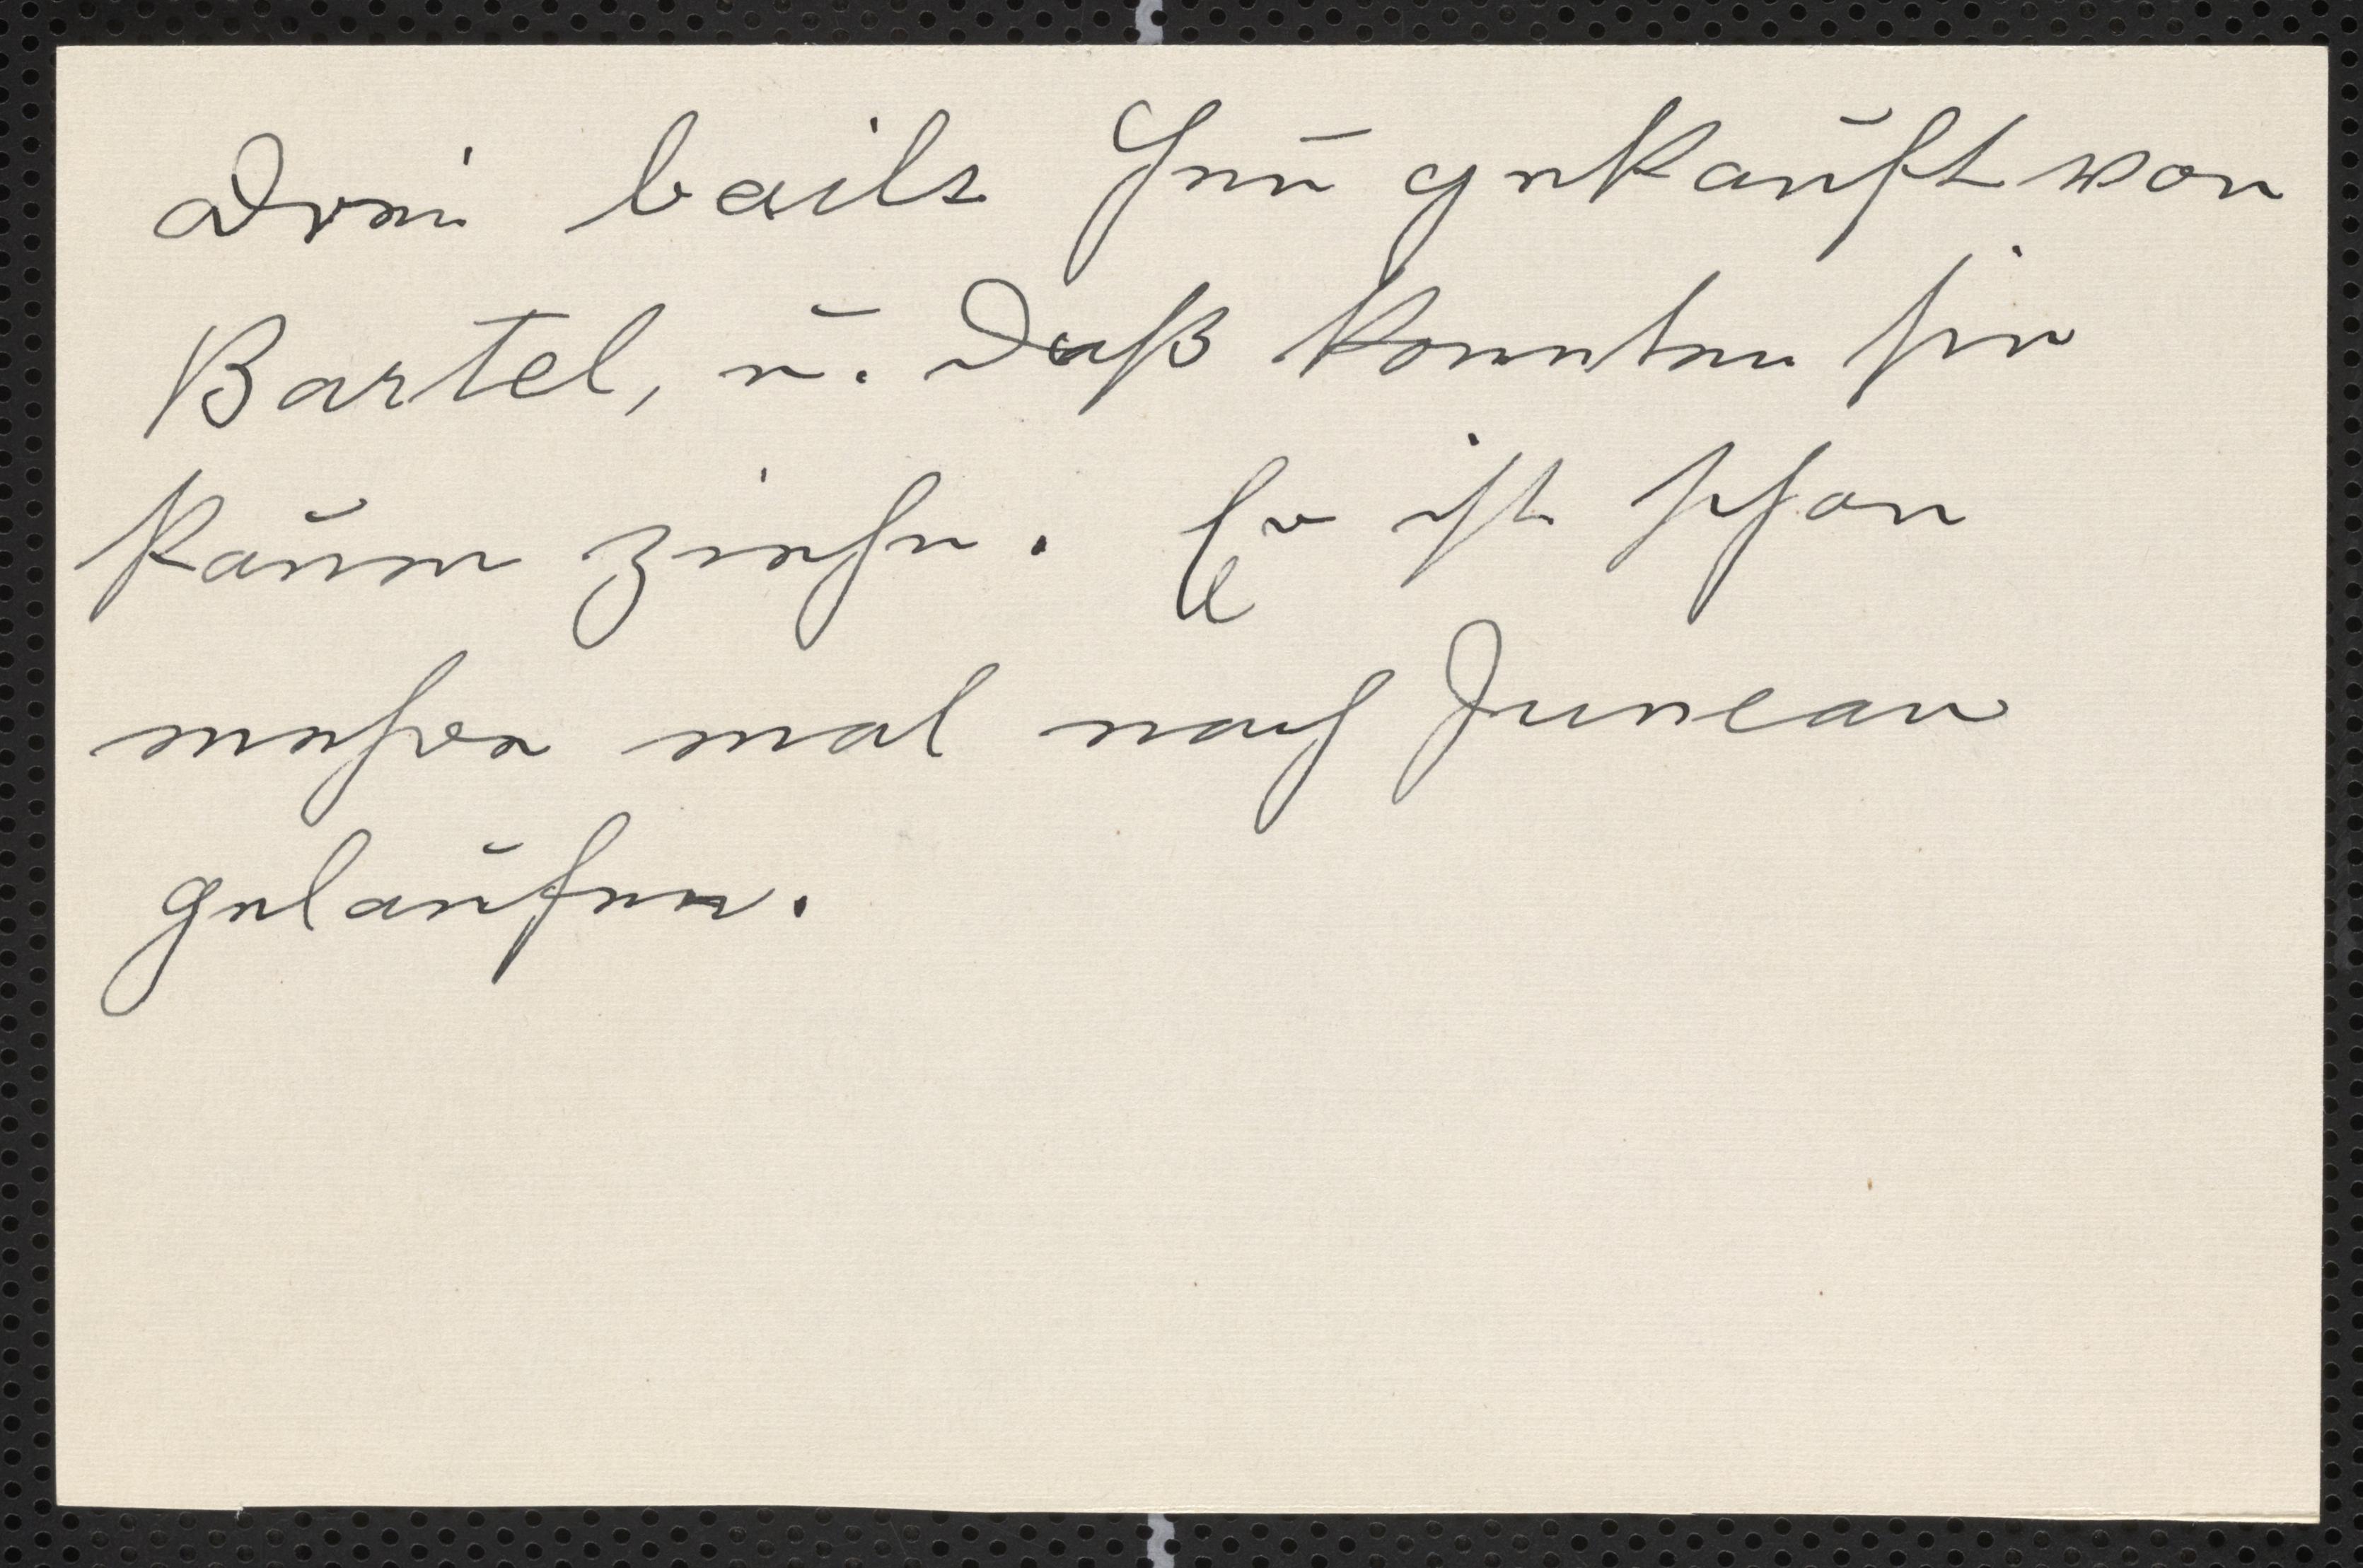 Drei bails Heu gekauft von
Bartel, u. daß konnten sie
kaum ziehn. Er ist schon
mehre mal nach Juneau
gelaufen.